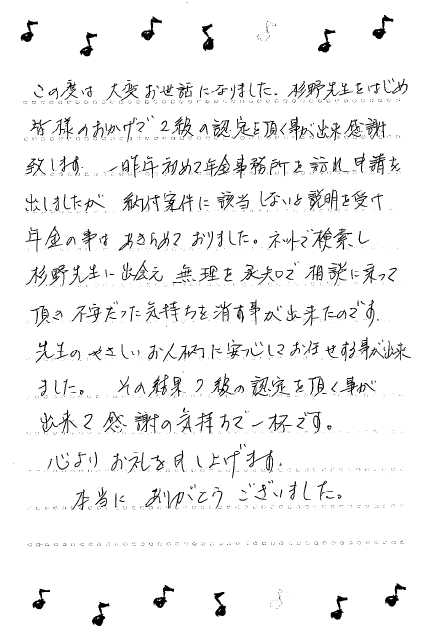 この度は 大変お世話になりました。杉野先生をはじめ
皆様のおかげで2級の認定を頂く事が出来感謝
致します 一昨年初めて年金事務所を訪れ申請を
出しましたが 納付案件に該当しないと説明を受け
年金の事はあきらめておりました。ネットで検索し
杉野先生に出会え 無理を承知で相談に乗って
頂き不安だった気持ちを消す事が出来たのです
先生のやさしいお人柄に安心してお任せする事が出来
ました。 その結果2級の認定を頂く事が
出来て感謝の気持ちで一杯です。
心よりお礼を申し上げます。
本当に ありがとうございました。